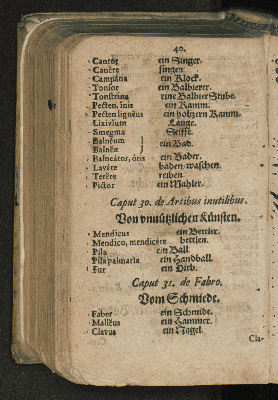 40.
Cantor ein Singer.
Canĕre singen.
Campāna ein Klock.
Tonsor ein Balbierer.
Tonstrīna eine BalbierStube.
Pecten, ĭnis ein Kamm.
Pecten lignĕus ein höltzern Kamm.
Lixivĭum Lauge.
Smegma Seiffe.
Balnĕum } ein Bad.
Balnĕæ
Balneātor, ōris ein Bader.
Lavāre baden, waschen.
Terĕre reiben.
Pictor ein Mahler.
Caput 30. de Artibus inutilibus.
Von vnnützlichen Künsten.
Mendīcus ein Bettler.
Mendīco, mendicāre bettlen.
Pila ein Ball.
Pila palmaria ein Handball.
Fur ein Dieb.
Caput 31. de Fabro.
Vom Schmiedt.
Faber ein Schmidt.
Mallĕus ein Hammer.
Clavus ein Nagel.
Cla-